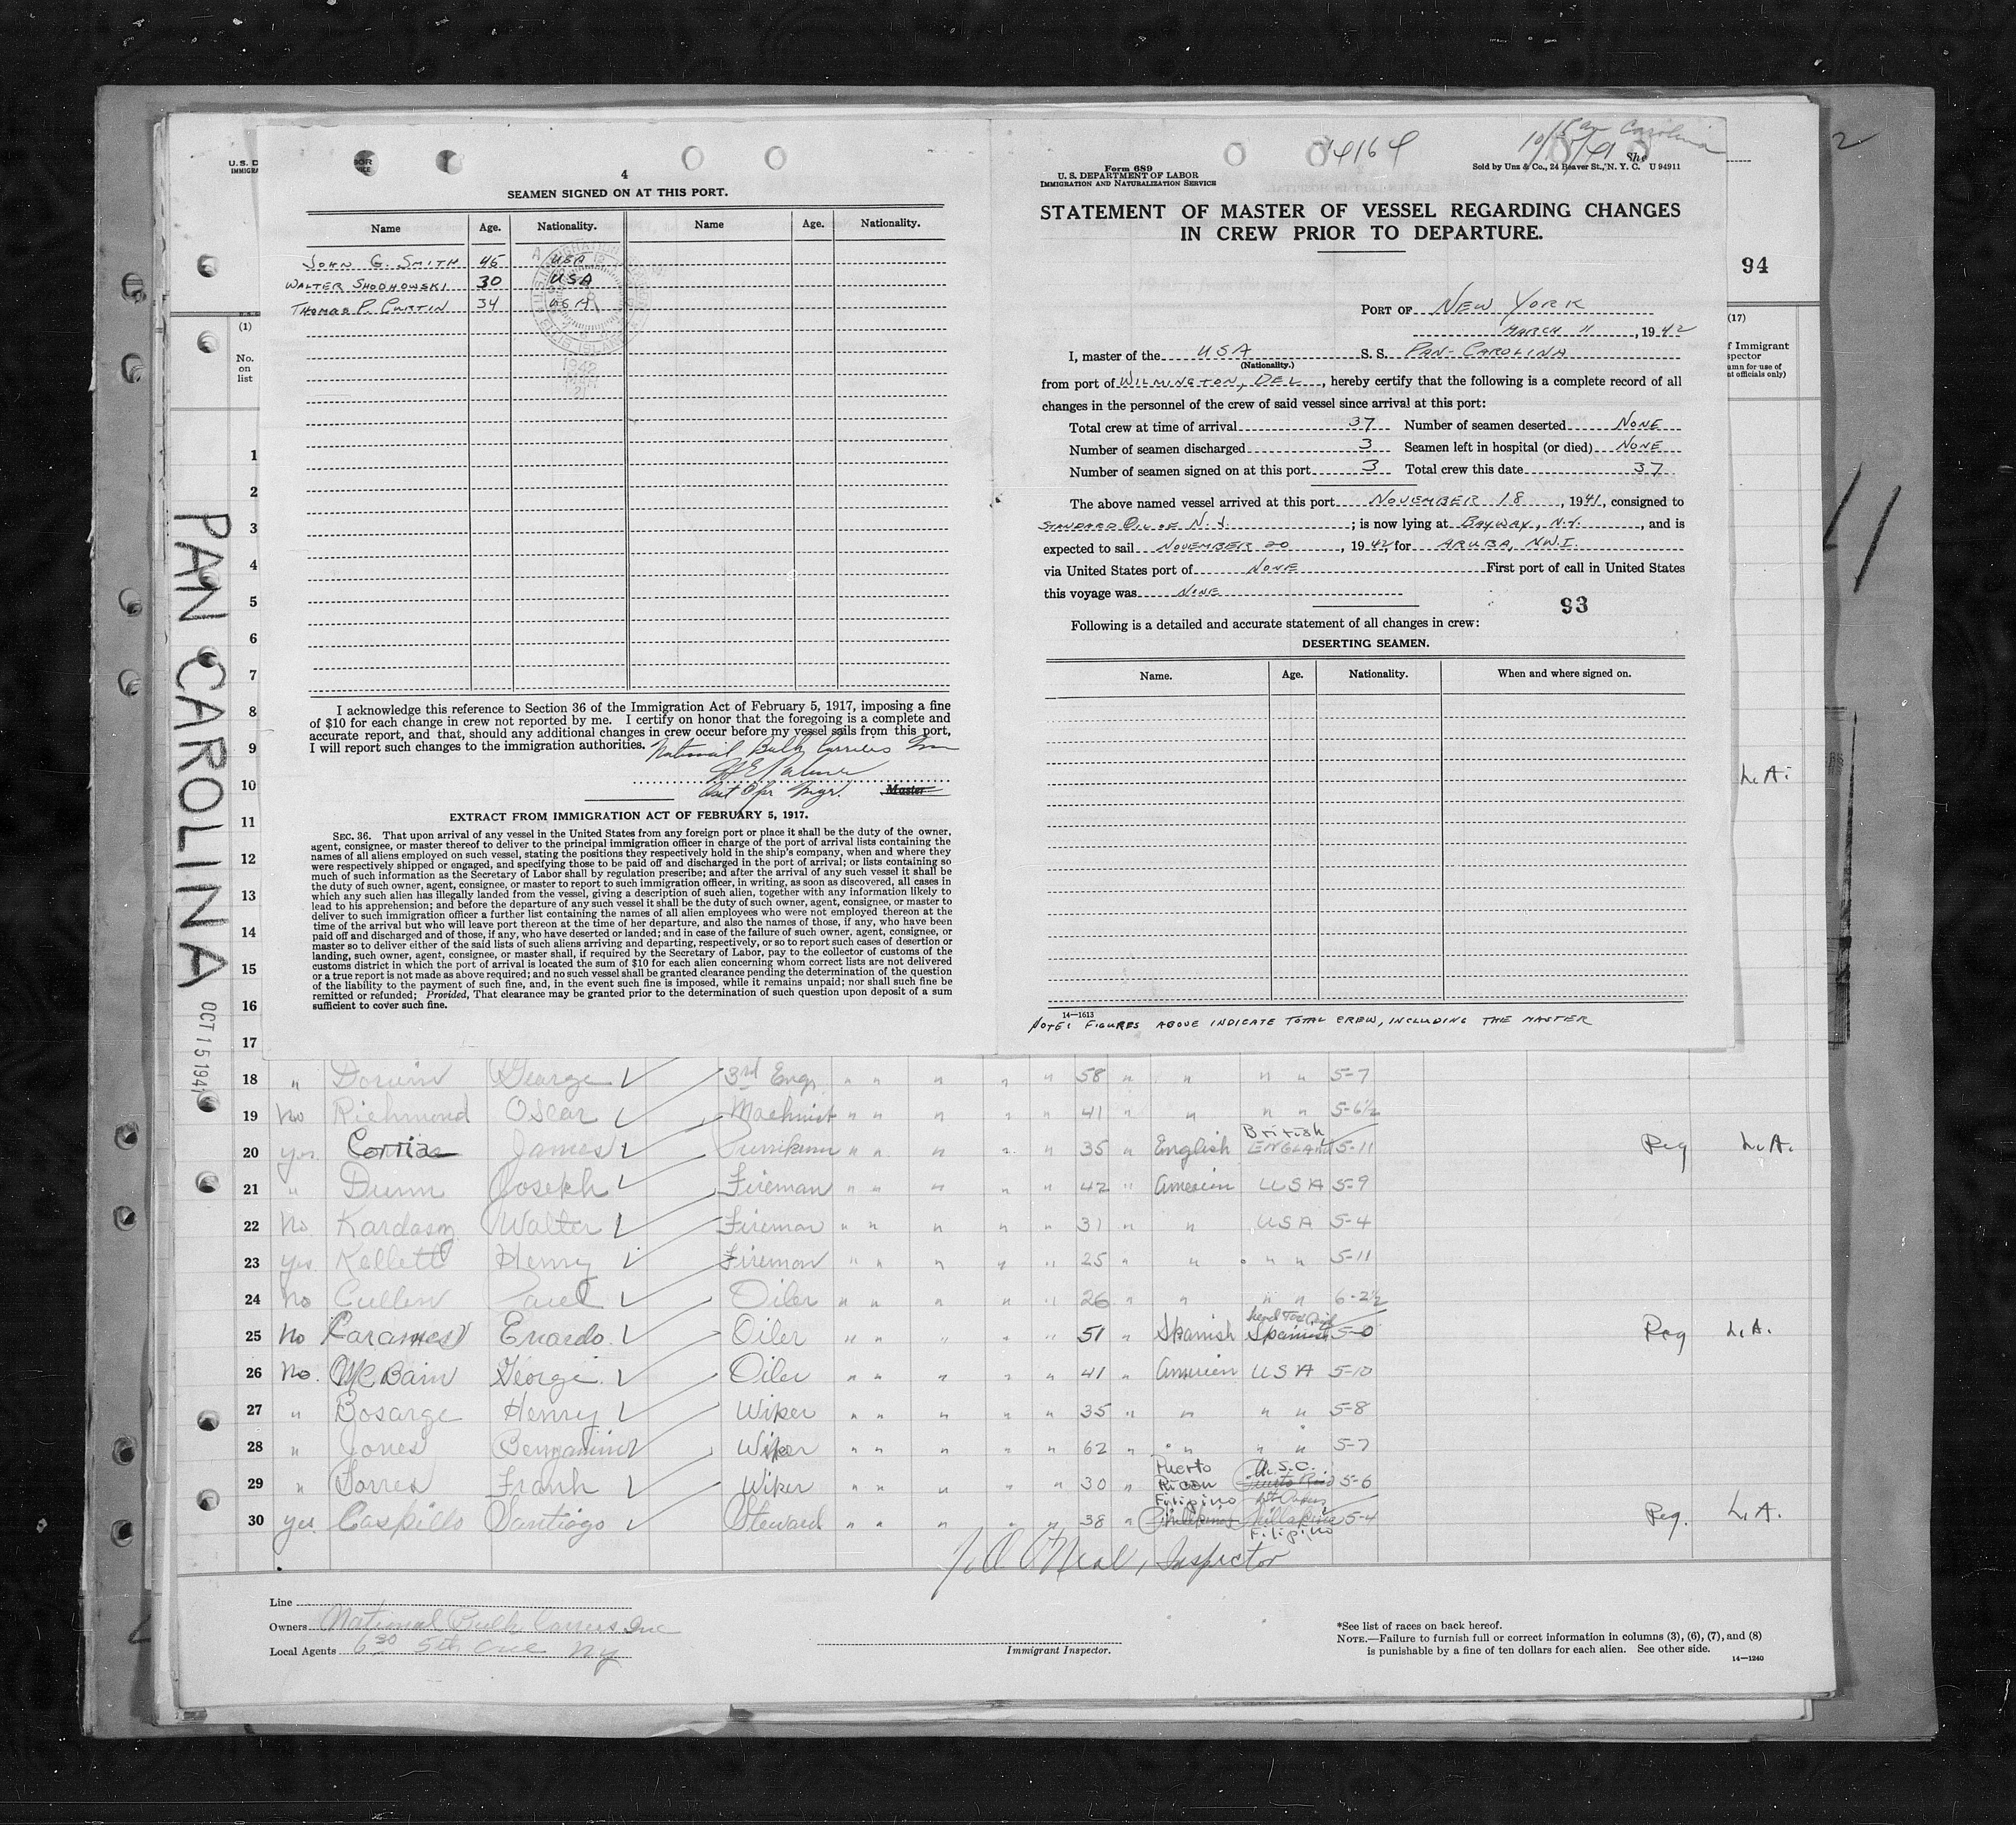 4
SEAMEN SIGNED ON AT THIS PORT.
Name Age. Nationality. Name Age. Nationality.
JOHN G. SMITH 45 USA
WALTER SHODHOWSKI 30 USA
THOMAS P. CURTIN 34 USA
I acknowledge this reference to Section 36 of the Immigration Act of February 5, 1917, imposing a fine
of $10 for each change in crew not reported by me. I certify on honor that the foregoing is a complete and
accurate report, and that, should any additional changes in crew occur before my vessel sails from this port,
I will report such changes to the immigration authorities. National Bulk Carriers Inc
Palmer
Asst Opr Mgr. Master
EXTRACT FROM IMMIGRATION ACT OF FEBRUARY 5, 1917.
SEC. 36. That upon arrival of any vessel in the United States from any foreign port or place it shall be the duty of the owner,
agent, consignee, or master thereof to deliver to the principal immigration officer in charge of the port of arrival lists containing the
names of all aliens employed on such vessel, stating the positions they respectively hold in the ship's company, when and where they
were respectively shipped or engaged, and specifying those to be paid off and discharged in the port of arrival; or lists containing so
much of such information as the Secretary of Labor shall by regulation prescribe; and after the arrival of any such vessel it shall be
the duty of such owner, agent, consignee, or master to report to such immigration officer, in writing, as soon as discovered, all cases in
which any such alien has illegally landed from the vessel, giving a description of such alien, together with any information likely to
lead to his apprehension; and before the departure of any such vessel it shall be the duty of such owner, agent, consignee, or master to
deliver to such immigration officer a further list containing the names of all alien employees who were not employed thereon at the
time of the arrival but who will leave port thereon at the time of her departure, and also the names of those, if any, who have been
paid off and discharged and of those, if any, who have deserted or landed; and in case of the failure of such owner, agent, consignee, or
master so to deliver either of the said lists of such aliens arriving and departing, respectively, or so to report such cases of desertion or
landing, such owner, agent, consignee, or master shall, if required by the Secretary of Labor, pay to the collector of customs of the
customs district in which the port of arrival is located the sum of $10 for each alien concerning whom correct lists are not delivered
or a true report is not made as above required; and no such vessel shall be granted clearance pending the determination of the question
of the liability to the payment of such fine, and, in the event such fine is imposed, while it remains unpaid; nor shall such fine be
remitted or refunded; Provided, That clearance may be granted prior to the determination of such question upon deposit of a sum
sufficient to cover such fine.
Form 689
U. S. DEPARTMENT OF LABOR
IMMIGRATION AND NATURALIZATION SERVICE
Pan Carolina
Sold by Unz & Co., 24 Beaver St., N. Y. C. U 94911
STATEMENT OF MASTER OF VESSEL REGARDING CHANGES
IN CREW PRIOR TO DEPARTURE.
PORT OF NEW YORK
MARCH 11, 1942
I, master of the USA S. S. PAN-CAROLINA
(Nationality.)
from port of WILMINGTON, DEL, hereby certify that the following is a complete record of all
changes in the personnel of the crew of said vessel since arrival at this port:
Total crew at time of arrival 37 Number of seamen deserted NONE
Number of seamen discharged 3 Seamen left in hospital (or died) NONE
Number of seamen signed on at this port 3 Total crew this date 37
The above named vessel arrived at this port NOVEMBER 18, 1941, consigned to
STANDARD OIL OF N. J. ; is now lying at BAYWAY, N.J. , and is
expected to sail NOVEMBER 20, 1942 for ARUBA, N.W.I.
via United States port of NONE First port of call in United States
this voyage was NONE
93
Following is a detailed and accurate statement of all changes in crew:
DESERTING SEAMEN.
Name. Age. Nationality. When and where signed on.
14—1613
NOTE: FIGURES ABOVE INDICATE TOTAL CREW, INCLUDING THE MASTER
94
(17)
(1)
No.
on
list
1
2
3
4
5
6
7
8
9
10 L.A.
11
12
13
14
15
16
17
PAN CAROLINA
OCT 15 194
18 " Dorwin George 3rd Engr " " " " " 58 " " " " 5-7
19 No Richmond Oscar Machinist " " " " " 41 " " " " 5-6½
20 yes James Pumpman " " " " " 35 " English British ENGLAND 5-11 Reg L.A.
21 " Dunn Joseph Fireman " " " " " 42 " American USA 5-9
22 No Kardasz Walter Fireman " " " " " 31 " " USA 5-4
23 yes Kellett Henry Fireman " " " " " 25 " " " " 5-11
24 No Cullen Paul Oiler " " " " " 26 " " " " 6-2½
25 No Carames Enardo Oiler " " " " " 51 " Spanish Spanish 5-0 Reg L.A.
26 No. McBain George Oiler " " " " " 41 " American USA 5-10
27 " Bosarge Henry Wiper " " " " " 35 " " " " 5-8
28 " Jones Benjamin Wiper " " " " " 62 " " " " 5-7
29 " Torres Frank Wiper " " " " " 30 " Puerto Rican U.S.C. Puerto Rico 5-6
30 yes Caspillo Santiago Steward " " " " " 38 " Filipino Filipino 5-4 Reg. L.A.
O'Neal, Inspector
Line
Owners National Bulk Carriers Inc
Local Agents 630 5th Ave NY
Immigrant Inspector.
*See list of races on back hereof.
NOTE.—Failure to furnish full or correct information in columns (3), (6), (7), and (8)
is punishable by a fine of ten dollars for each alien. See other side.
14—1240